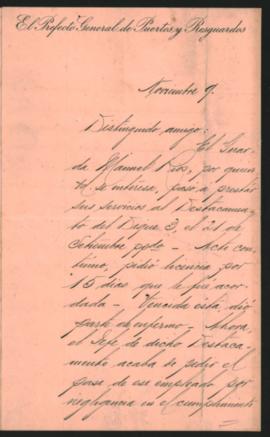 El Prefecto General de Puertos y Resguardos
Noviembre 9.
Distinguido amigo:
El Guarda
Manuel Rios, por quien
Vd. se interesa, pasó a prestar
sus servicios al Destacamento
del Dique 3, el 21 de
Setiembre ppdo - Acto continuo,
pidió licencia por
15 dias que le fue acordada
- Vencida ésta, dió
parte de enfermo - Ahora,
el Jefe de dicho Destacamento
acaba de pedir el
pase de ese empleado por
negligencia en el cumplimiento